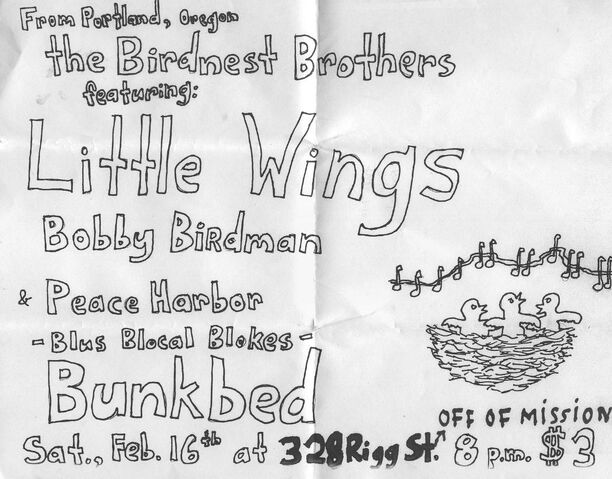 From Portland, Oregon
the Birdnest Brothers
featuring:
Little Wings
Bobby BiRdman
& Peace Harbor
- Blus Blocal Blokes -
Bunkbed
OFF OF MISSION
Sat., Feb. 16th at 328 Rigg St. 8 p.m. $3